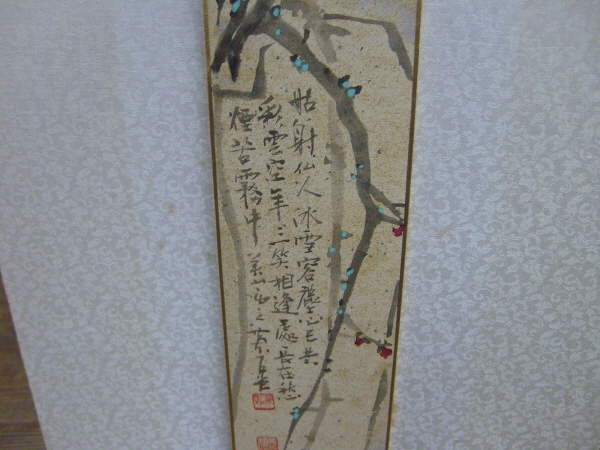 姑射仙人冰雪容塵心已共
彩雲空年年一笑相逢處長在愁
煙苦霧中